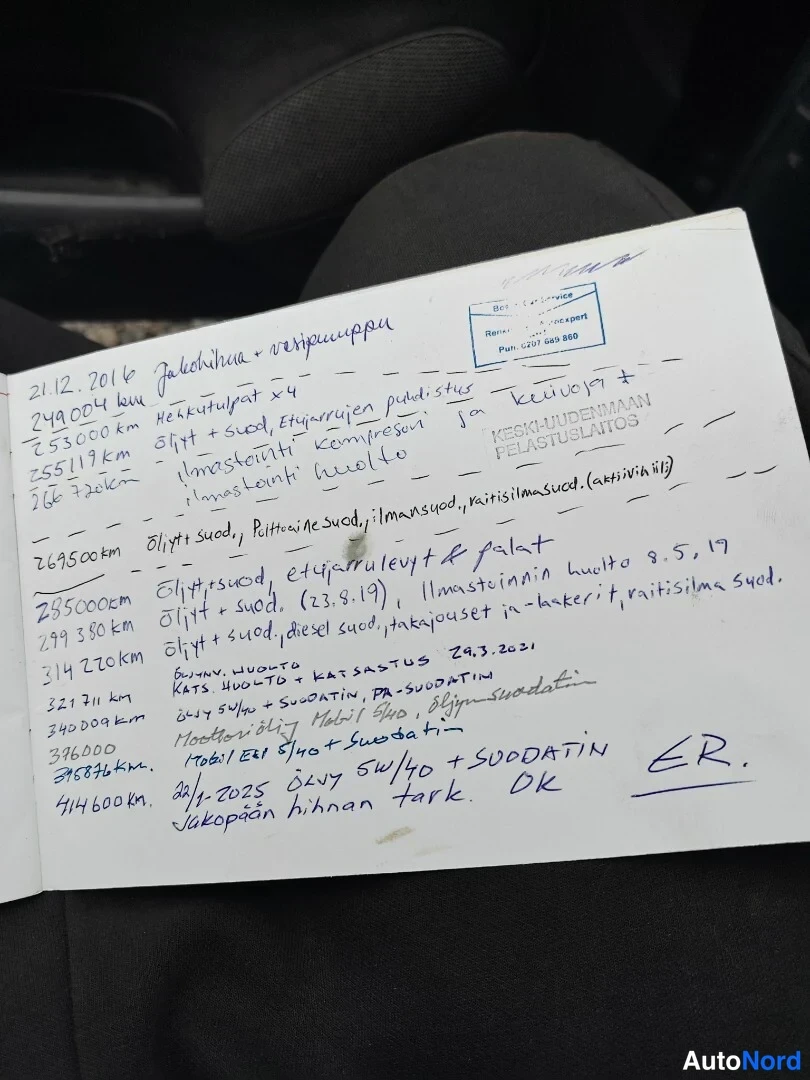 21.12.2016 Jakohihna + vesipumppu
249004 km
253000 km Hehkutulpat x4
255119 km Öljyt + suod, Etujarrujen puhdistus
266 720km ilmastointi kompresori ja kuivaja +
ilmastointi huolto
Service
Puh. 0207 689 860
KESKI-UUDENMAAN
PELASTUSLAITOS
269500km Öljyt + suod., Polttoaine suod., ilmansuod., raitisilmasuod. (aktiivihiili)
285000km Öljyt, +suod, etujarrulevyt & palat
299 380 km Öljyt + suod. (23.8.19), Ilmastoinnin huolto 8.5.19
314 220 km Öljyt + suod., diesel suod., takajouset ja -laakerit, raitisilma suod.
321 711 km ÖLJYNV. HUOLTO
KATS. HUOLTO + KATSASTUS 29.3.2021
340009 km ÖLJY 5W/40 + SUODATIN, PA-SUODATIN
376000 Moottoriöljy Mobil 5/40, Öljynsuodatin
395876 km. Mobil ESP 5/40 + Suodatin
414600 km. 22/1-2025 ÖLJY 5W/40 + SUODATIN
Jakopään hihnan tark. OK ER.
AutoNord